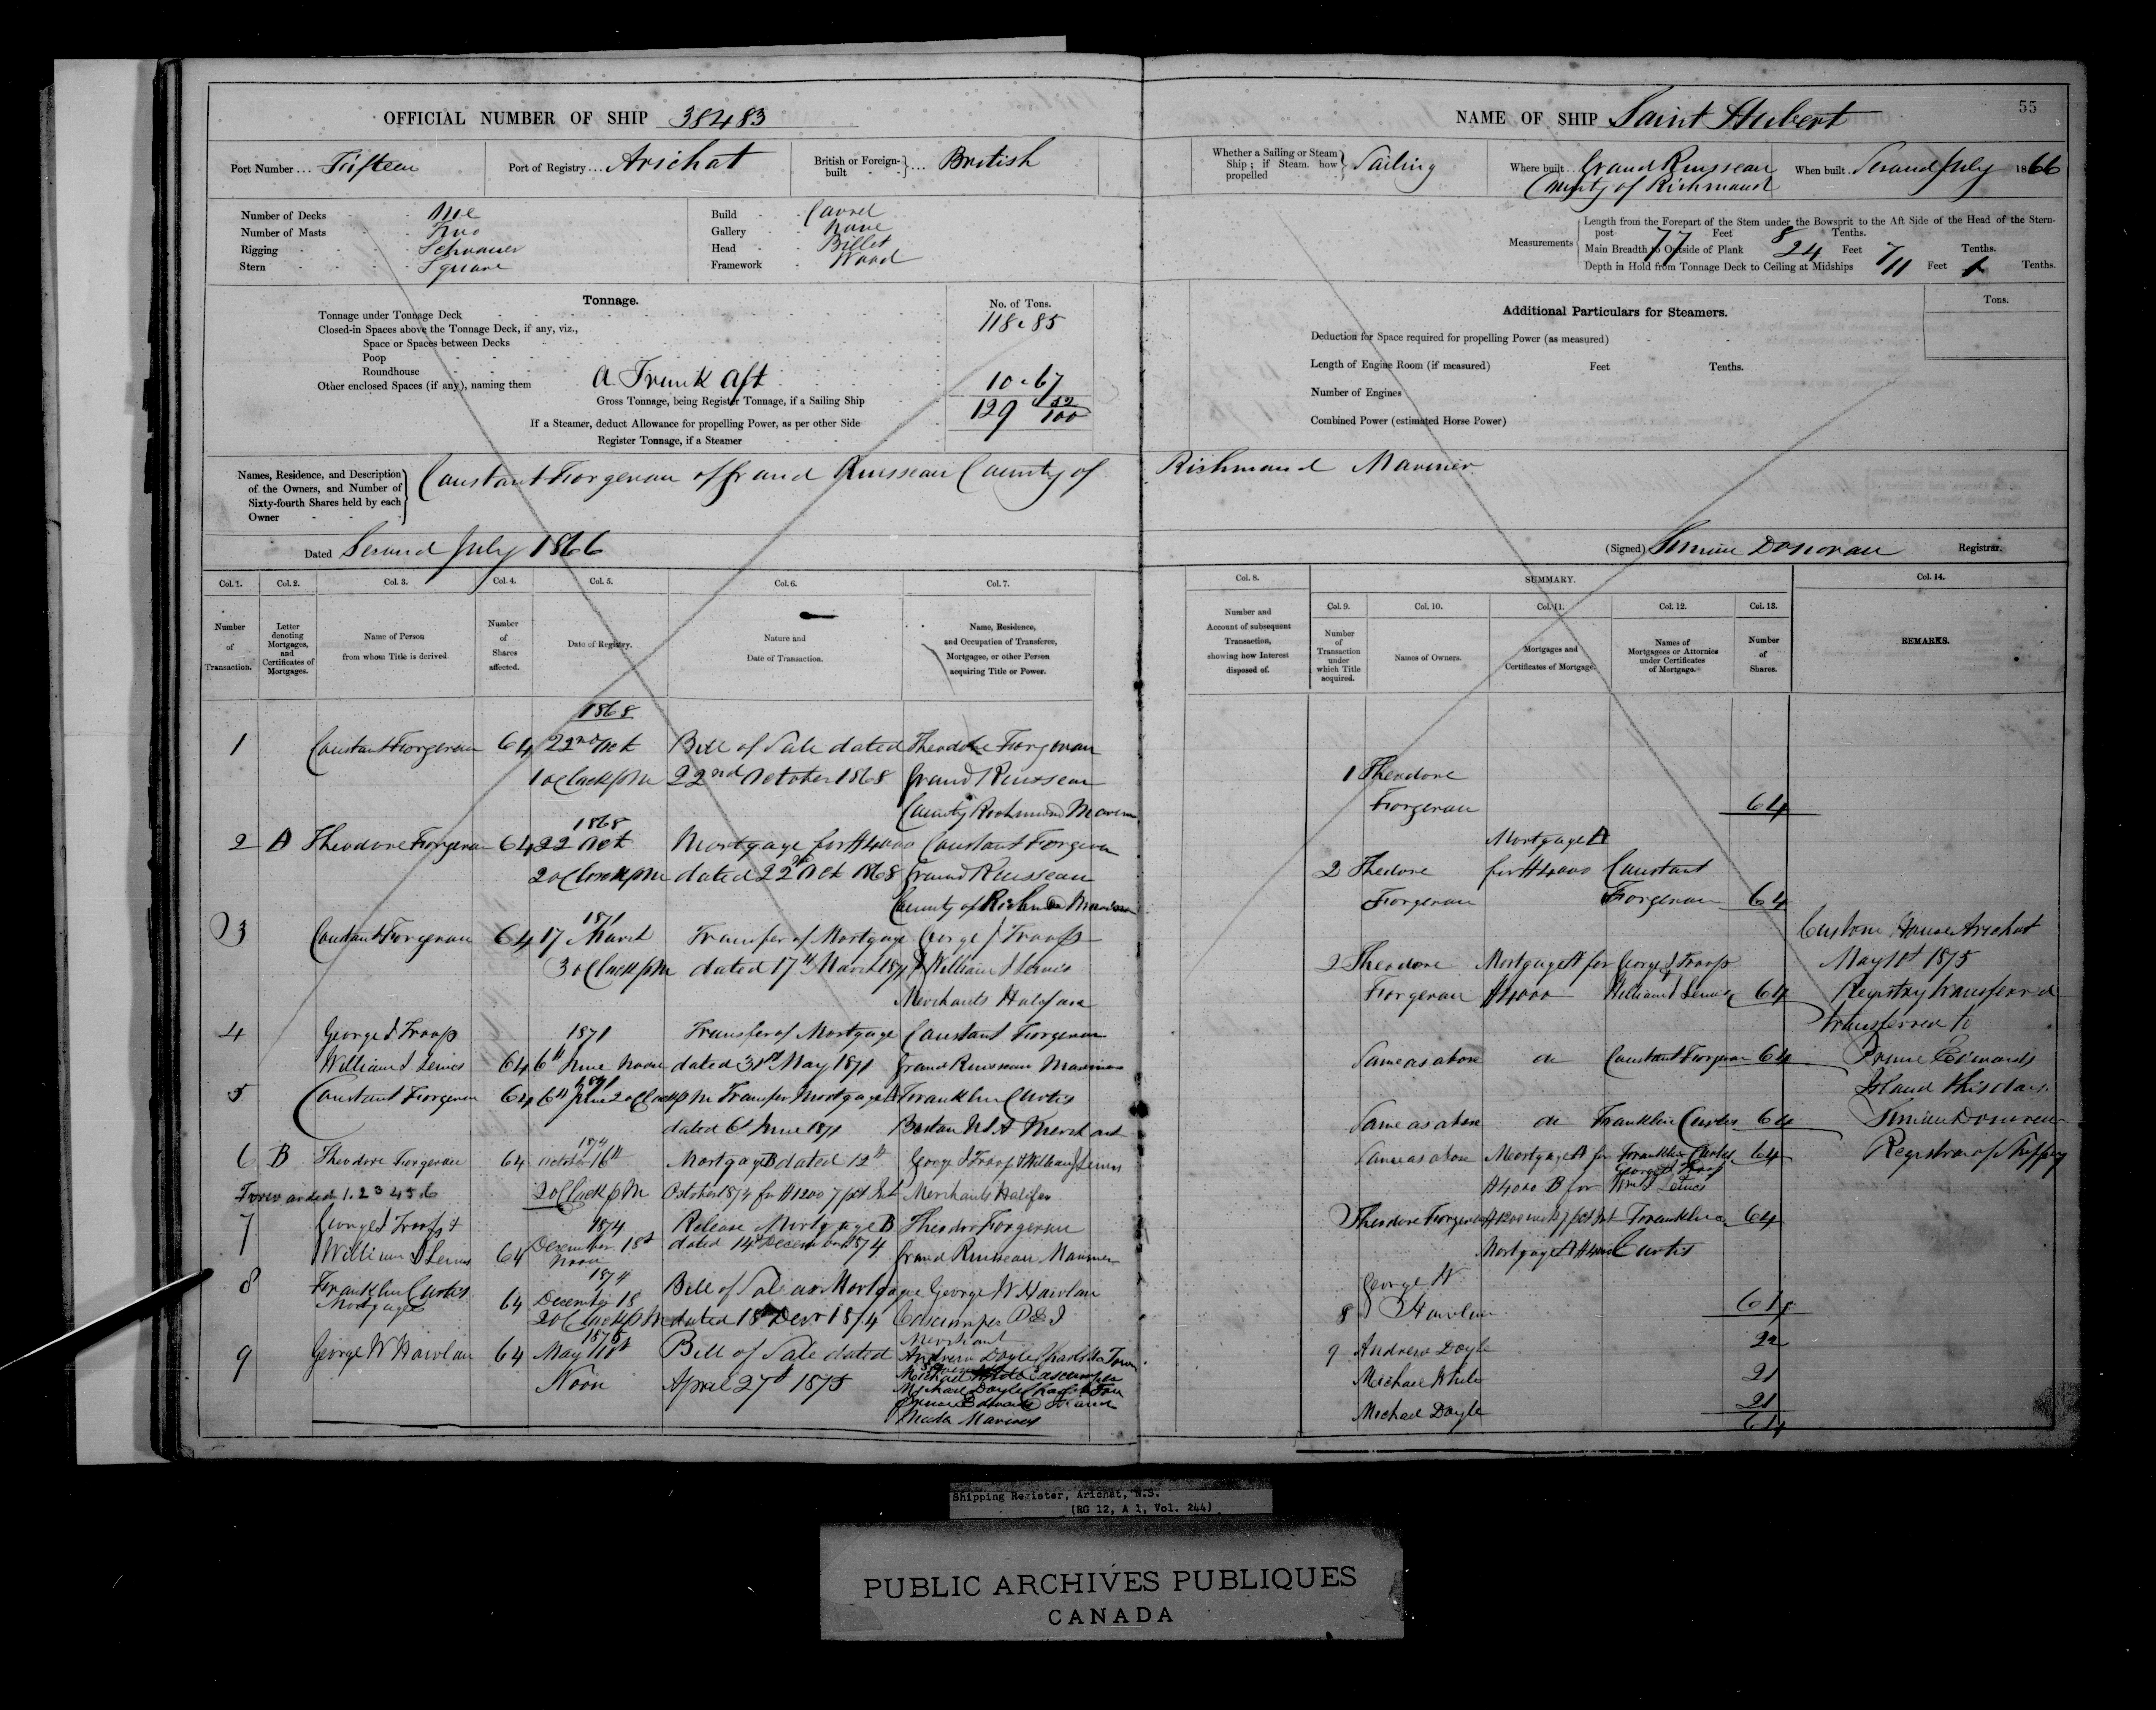 55
OFFICIAL NUMBER OF SHIP 38483
NAME OF SHIP Saint Hubert
Port Number ... Fifteen
Port of Registry ... Arichat
British or Foreign-built ... British
Whether a Sailing or Steam Ship; if Steam how propelled Sailing
Where built .. Grand Ruisseau County of Richmond
When built .. Second July 1866
Number of Decks One
Number of Masts Two
Rigging Schooner
Stern Square
Build Carvel
Gallery None
Head Billet
Framework Wood
Measurements
Length from the Forepart of the Stem under the Bowsprit to the Aft Side of the Head of the Stern-
post 77 Feet 8 Tenths.
Main Breadth to Outside of Plank 24 Feet 7 Tenths.
Depth in Hold from Tonnage Deck to Ceiling at Midships 11 Feet Tenths.
Tonnage.
No. of Tons.
Tonnage under Tonnage Deck 118.85
Closed-in Spaces above the Tonnage Deck, if any, viz.,
Space or Spaces between Decks
Poop
Roundhouse
Other enclosed Spaces (if any), naming them A Trunk Aft 10.67
Gross Tonnage, being Register Tonnage, if a Sailing Ship 129 52/100
If a Steamer, deduct Allowance for propelling Power, as per other Side
Register Tonnage, if a Steamer
Additional Particulars for Steamers.
Tons.
Deduction for Space required for propelling Power (as measured)
Length of Engine Room (if measured) Feet Tenths.
Number of Engines
Combined Power (estimated Horse Power)
Names, Residence, and Description of the Owners, and Number of Sixty-fourth Shares held by each Owner
Constant Forgeron of Grand Ruisseau County of Richmond Mariner
Dated Second July 1866
(Signed) Simeon Donovan Registrar.
Col. 1. Col. 2. Col. 3. Col. 4. Col. 5. Col. 6. Col. 7.
Number of Transaction.
Letter denoting Mortgages, and Certificates of Mortgages.
Name of Person from whom Title is derived
Number of Shares affected.
Date of Registry.
Nature and Date of Transaction.
Name, Residence, and Occupation of Transferee, Mortgagee, or other Person acquiring Title or Power.
Col. 8. SUMMARY. Col. 14.
Col. 9. Col. 10. Col. 11. Col. 12. Col. 13.
Number and Account of subsequent Transaction, showing how Interest disposed of.
Number of Transaction under which Title acquired.
Names of Owners.
Mortgages and Certificates of Mortgage.
Names of Mortgagees or Attornies under Certificates of Mortgage.
Number of Shares.
REMARKS.
1868
1 Constant Forgeron 64 22nd Oct Bill of Sale dated Theodore Forgeron
1 oClock pm 22nd October 1868 Grand Ruisseau
County Richmond
1868
2 A Theodore Forgeron 64 22 Oct Mortgage for $4000 Constant Forgeron
2 oClock pm dated 22nd Oct 1868 Grand Ruisseau
County of
1871
3 Constant Forgeron 64 17 March Transfer of Mortgage George J Troop
3 oClock pm dated 17th March 1871 William J Lewis
Merchants Halifax
4 George J Troop 1871 Transfer of Mortgage Constant Forgeron
William J Lewis 64 6th June Noon dated 31st May 1871 Grand Ruisseau Mariner
1871
5 Constant Forgeron 64 6th June 2 oClock pm Transfer Mortgage A Franklin Curtis
dated 6th June 1871 Boston Merchant
1874
6 B Theodore Forgeron 64 October 16th Mortgage B dated 12th George J Troop & William J Lewis
Forwarded 1.2 3 4 5 6 2 oClock pm October 1874 for $1200 7 pct Int Merchants Halifax
7 George J Troop & 1874 Release Mortgage B Theodore Forgeron
William J Lewis 64 December 18th Noon dated 14th December 1874 Grand Ruisseau Mariner
1874
8 Franklin Curtis Mortgagee 64 December 18 Bill of Sale as Mortgagee George W Howlan
2 oClock pm dated 18th Decr 1874 Cascumpec P E I
Merchant
1875
9 George W Howlan 64 May 11th Bill of Sale dated Andrew Doyle Charlotte Town
Noon April 27th 1875 Michael White Cascumpec
Michael Doyle
Prince Edward Island
Mariners
1 Theodore
Forgeron 64
Mortgage A
2 Theodore for $4000 Constant
Forgeron Forgeron 64
2 Theodore Mortgage A for George J Troop
Forgeron $4000 William J Lewis 64
Same as above do Constant Forgeron 64
Same as above do Franklin Curtis 64
Same as above Mortgage A for Franklin Curtis 64
$4000 B for George J Troop Wm J Lewis
2 Theodore Forgeron $1200 7 pct Int Franklin 64
Mortgage A $4000 Curtis
George W
8 Howlan 64
9 Andrew Doyle 22
Michael White 21
Michael Doyle 21
64
Custom House Arichat
May 11th 1875
Registry transferred
transferred to
Prince Edwards
Island this day.
Simeon Donovan
Registrar of Shipping
Shipping Register, Arichat, N.S.
(RG 12, A 1, Vol. 244)
PUBLIC ARCHIVES PUBLIQUES
CANADA